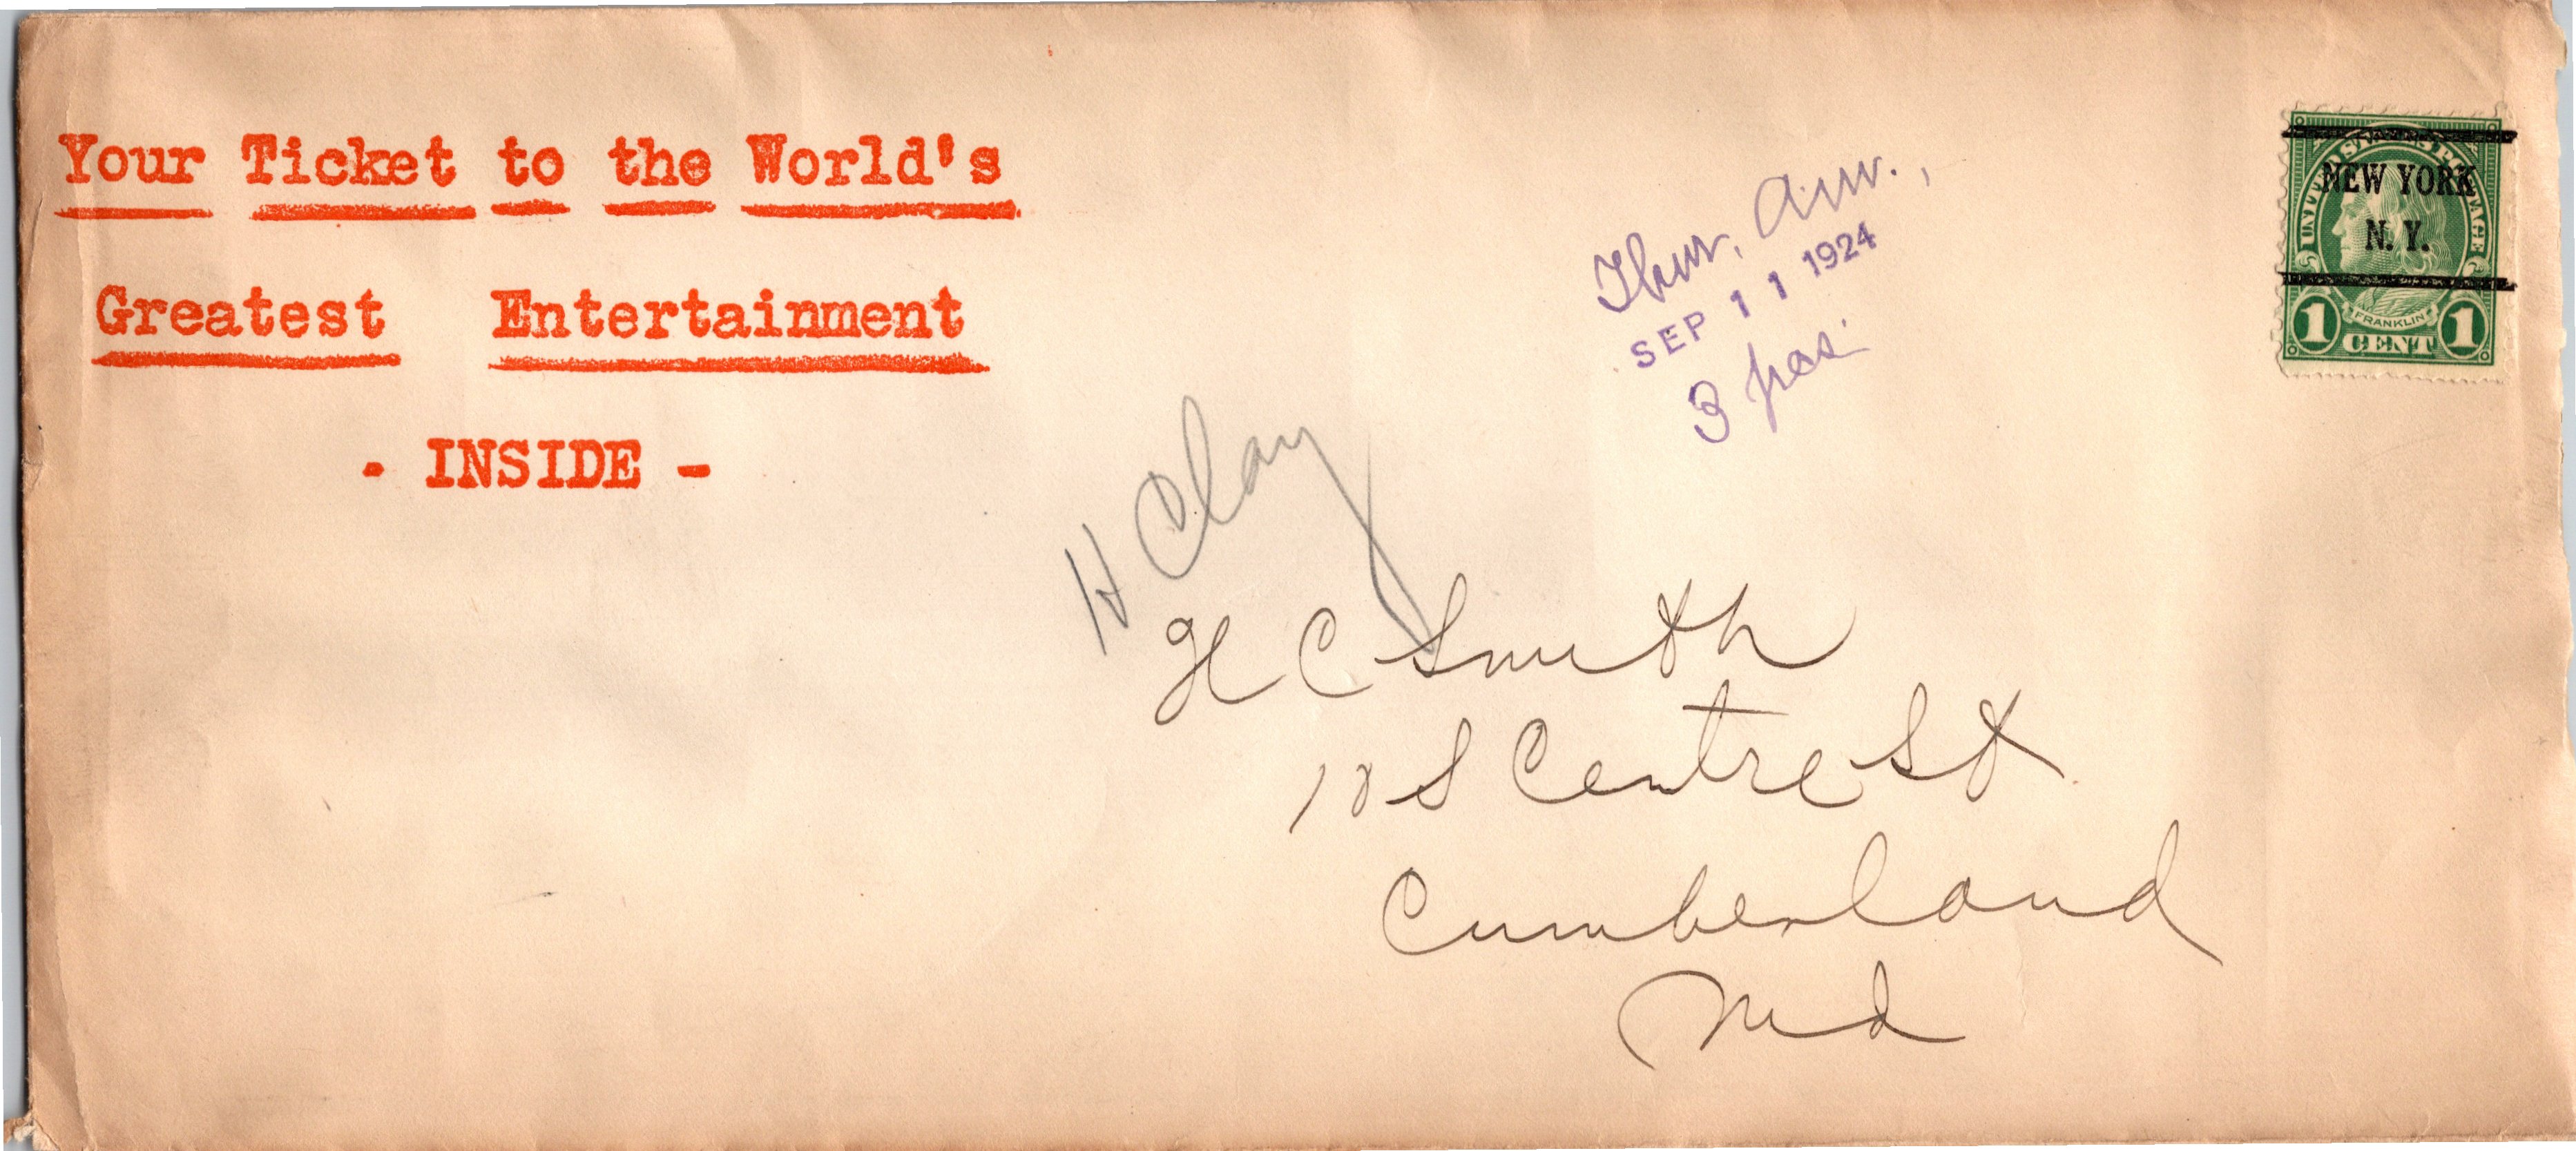 Your Ticket to the World's
Greatest Entertainment
- INSIDE -
Thur. am.,
SEP 11 1924
3 pcs.
UNITED STATES POSTAGE
NEW YORK
N. Y.
FRANKLIN
1 CENT 1
H Clay
H C Smith
18 S Centre St
Cumberland
Md